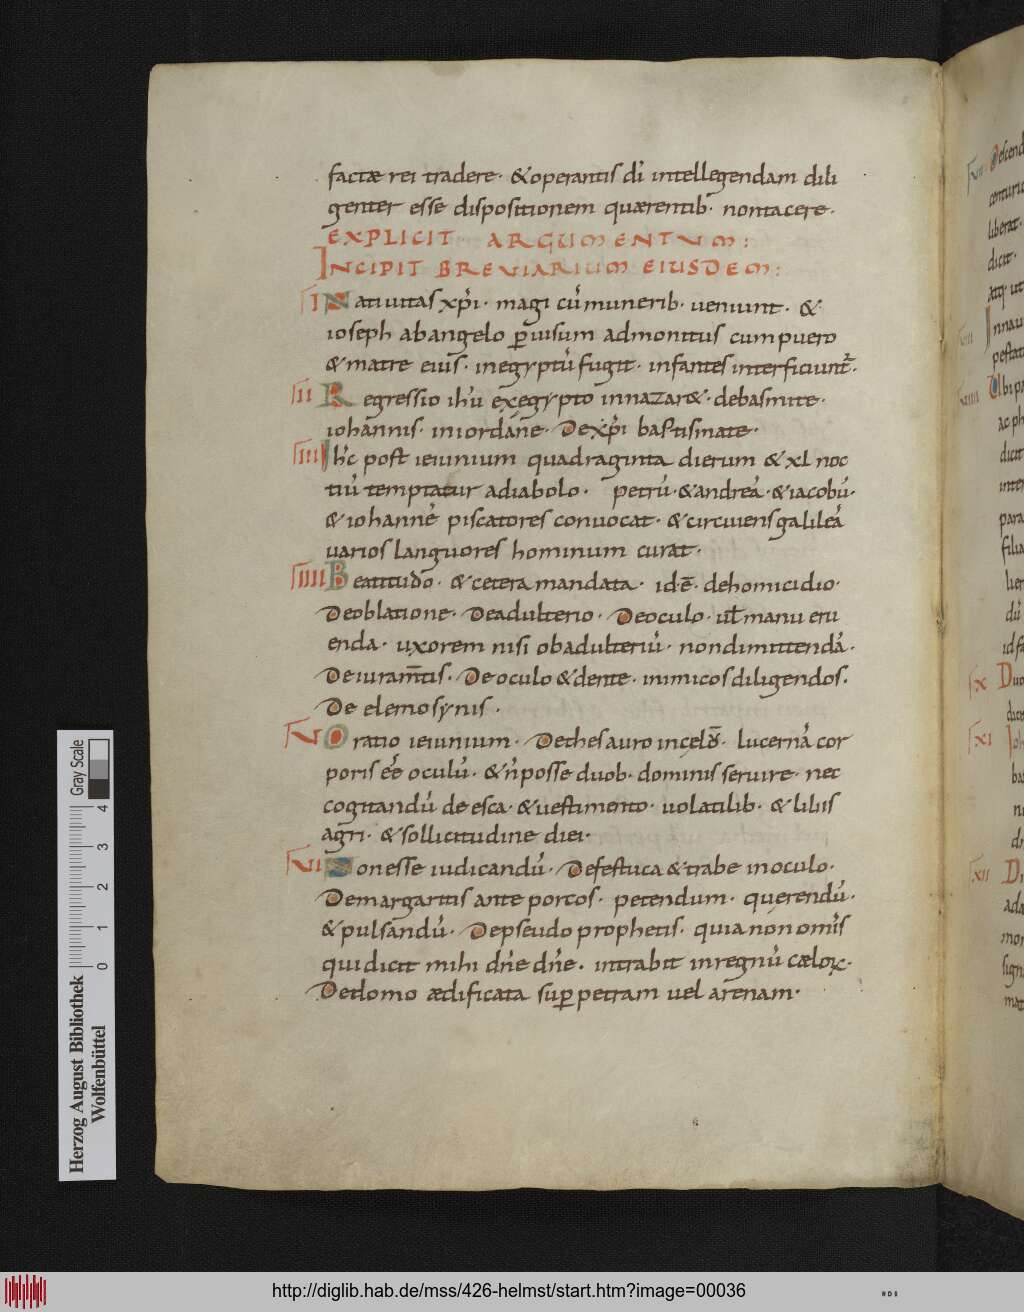 factæ rei tradere · & operantis dī intellegendam dili
genter esse dispositionem quærentib· non tacere ·
EXPLICIT ARGUMENTUM :
INCIPIT BREVIARIUM EIUSDEM :
I Nativitas xp̄i · magi cū munerib· veniunt · &
ioseph ab angelo p̱ visum admonitus cum puero
& matre eius · in egyptū fugit · infantes interficiunt̄ ·
II Regressio ihū ex egypto in nazar& · de basmite ·
iohannis · in iordāne · De xp̄i bastismate ·
III Ihc̄ post ieiunium quadraginta dierum & xl noc
tiū temptatur a diabolo · petrū · & andreā · & iacobū ·
& iohannē piscatores convocat · & circuiens galileā
varios languores hominum curat ·
IIII Beatitudo · & cetera mandata · id · ē · de homicidio ·
De oblatione · De adulterio · De oculo · ut̄ manu eru
enda · uxorem nisi ob adulteriū · non dimittendā ·
De iuram̄tis · De oculo & dente · inimicos diligendos ·
De elemosynis ·
V Oratio ieiunium · De thesauro in celō · lucernā cor
poris eē oculū · & n̄ posse duob· dominis servire · nec
cogitandū de esca · & vestimento · volatilib· & liliis
agri · & sollicitudine diei ·
VI Non esse iudicandū · De festuca & trabe in oculo ·
De margaritis ante porcos · petendum · querendū ·
& pulsandū · De pseudo prophetis · quia non om̄s
qui dicit mihi dn̄e dn̄e · intrabit in regnū cælorꝝ ·
De domo ædificata sup̱ petram vel arenam ·
Descend
centurio
liberat ·
dicit ·
atq· ut
In navi
pestat
Ubi pa
ac ph
dicit
inter
para
filia
lier
dū
id fa
X Duo
dicit
XI Ioh
ba
XII Di
ada
mor
sign
mat
Gray Scale
4 3 2 1 0
Herzog August Bibliothek
Wolfenbüttel
http://diglib.hab.de/mss/426-helmst/start.htm?image=00036